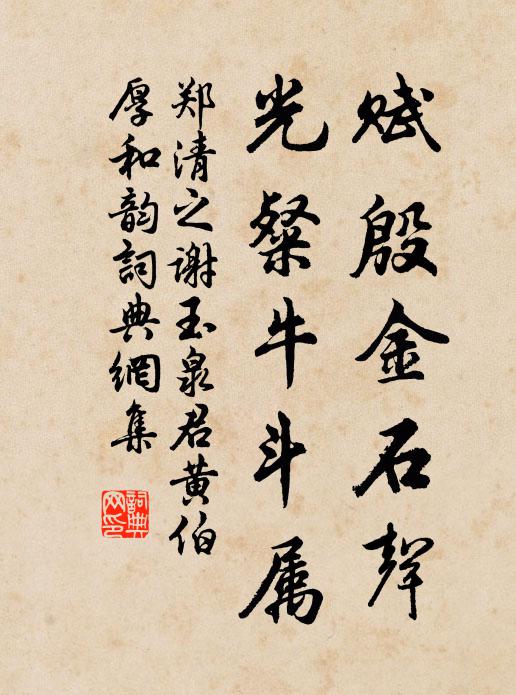 赋殷金石聲
光粲牛斗属
郑清之谢玉泉君黄伯
厚和韵詞典網集
詞典网印